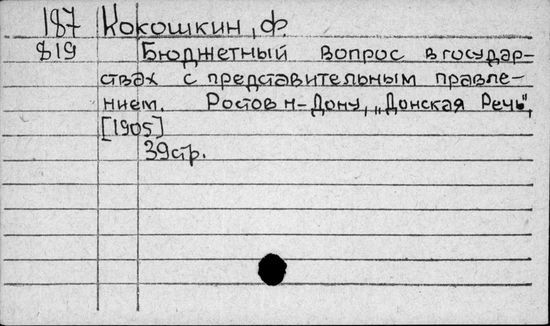 187 Кокошкин, Ф.
819 Бюджетный вопрос в государ=
ствах с представительным правле-
нием. Ростов н-Дону, „Донская Речь",
[1905]
39стр.